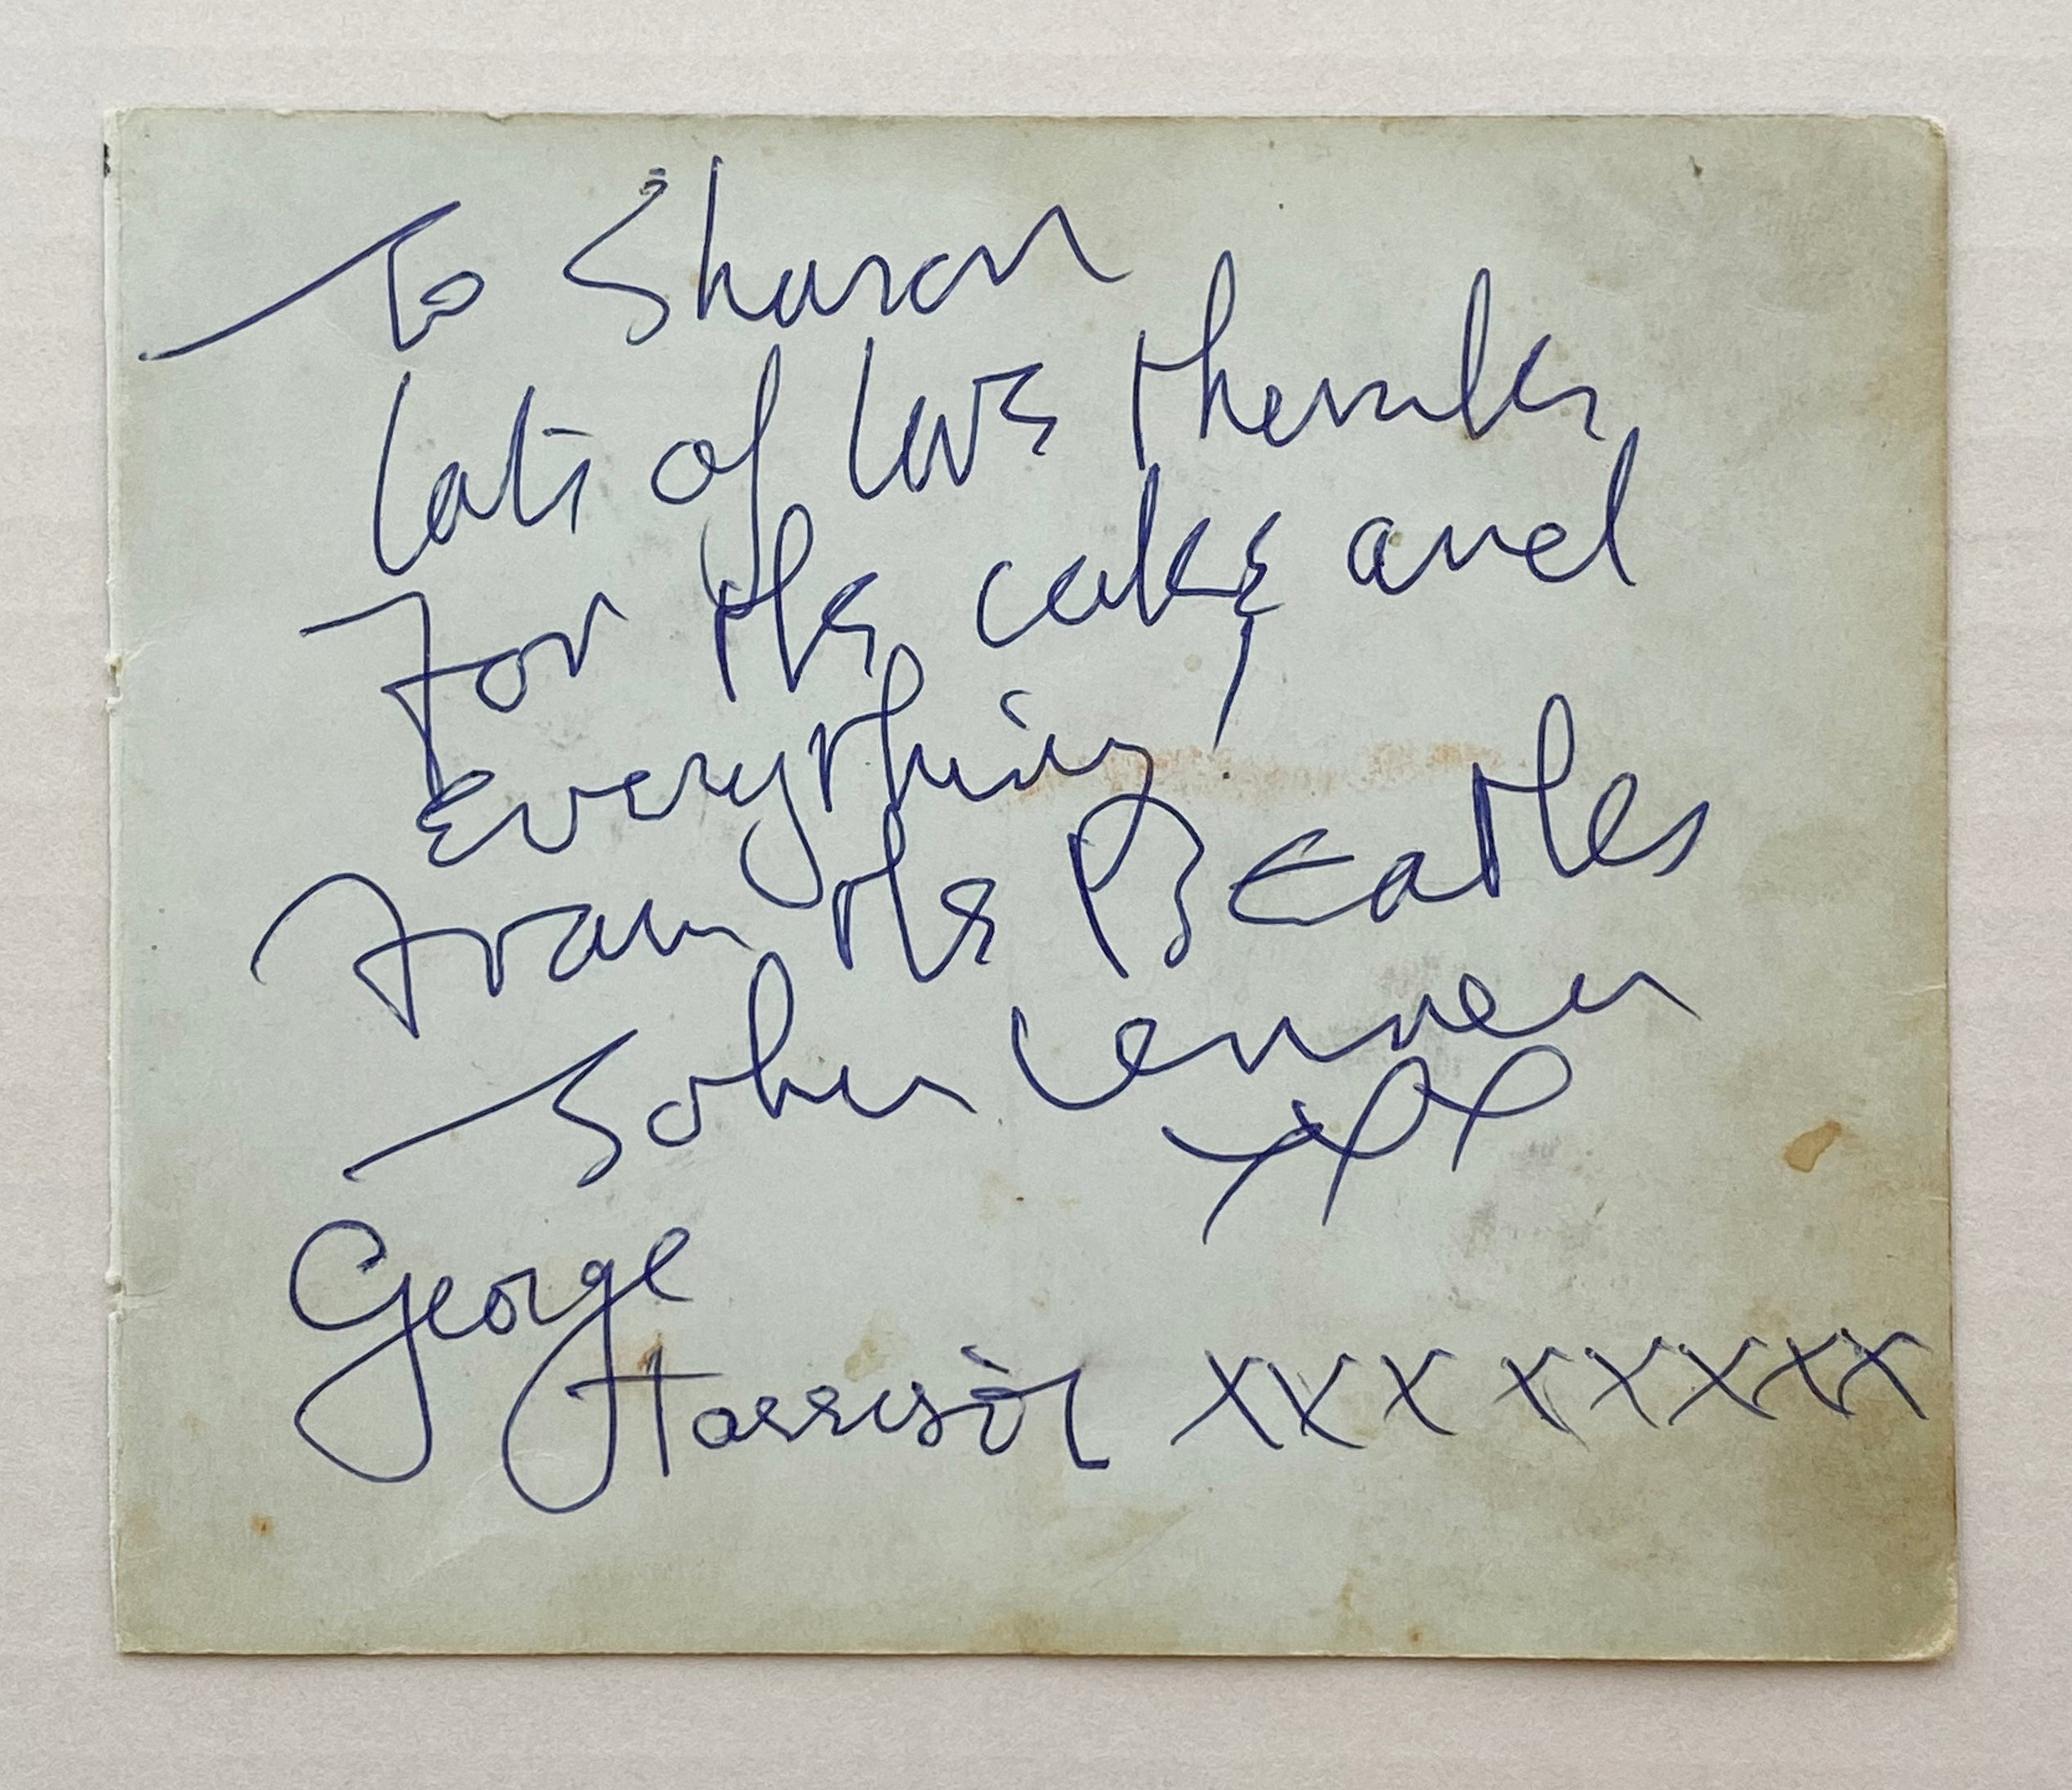 To Sharon
lots of love thanks
for the cake and
everything!
from the Beatles
John Lennon
xxx
George
Harrison xxx xxxxx